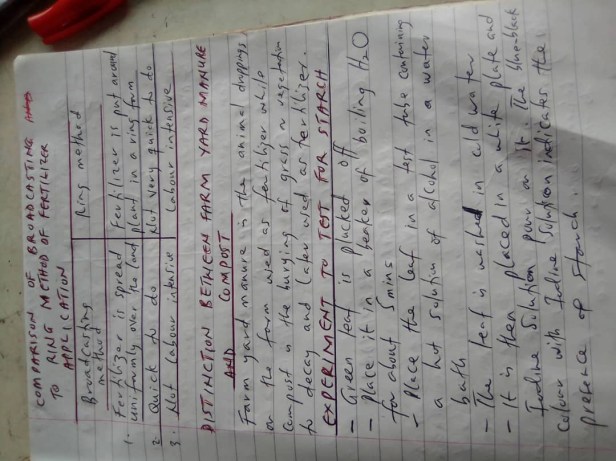 COMPARISON OF BROADCASTING AND
TO RING METHOD OF FERTILIZER
APPLICATION
Broadcasting method | Ring method
1. Fertilizer is spread uniformly over the land | Fertilizer is put around plant in a ring form
2. Quick to do | Not very quick to do
3. Not labour intensive | Labour intensive
DISTINCTION BETWEEN FARM YARD MANURE
AND COMPOST
Farm yard manure is the animal droppings
on the farm used as fertilizer while
compost is the burying of grass n vegetation
to decay and later used as fertilizer.
EXPERIMENT TO TEST FOR STARCH
- Green leaf is plucked off
- Place it in a beaker of boiling H2O
for about 5mins
- Place the leaf in a test tube containing
a hot solution of alcohol in a water
bath
- The leaf is washed in cold water
- It is then placed in a white plate and
Iodine solution pour on it. The blue-black
colour with Iodine solution indicates the
presence of starch.